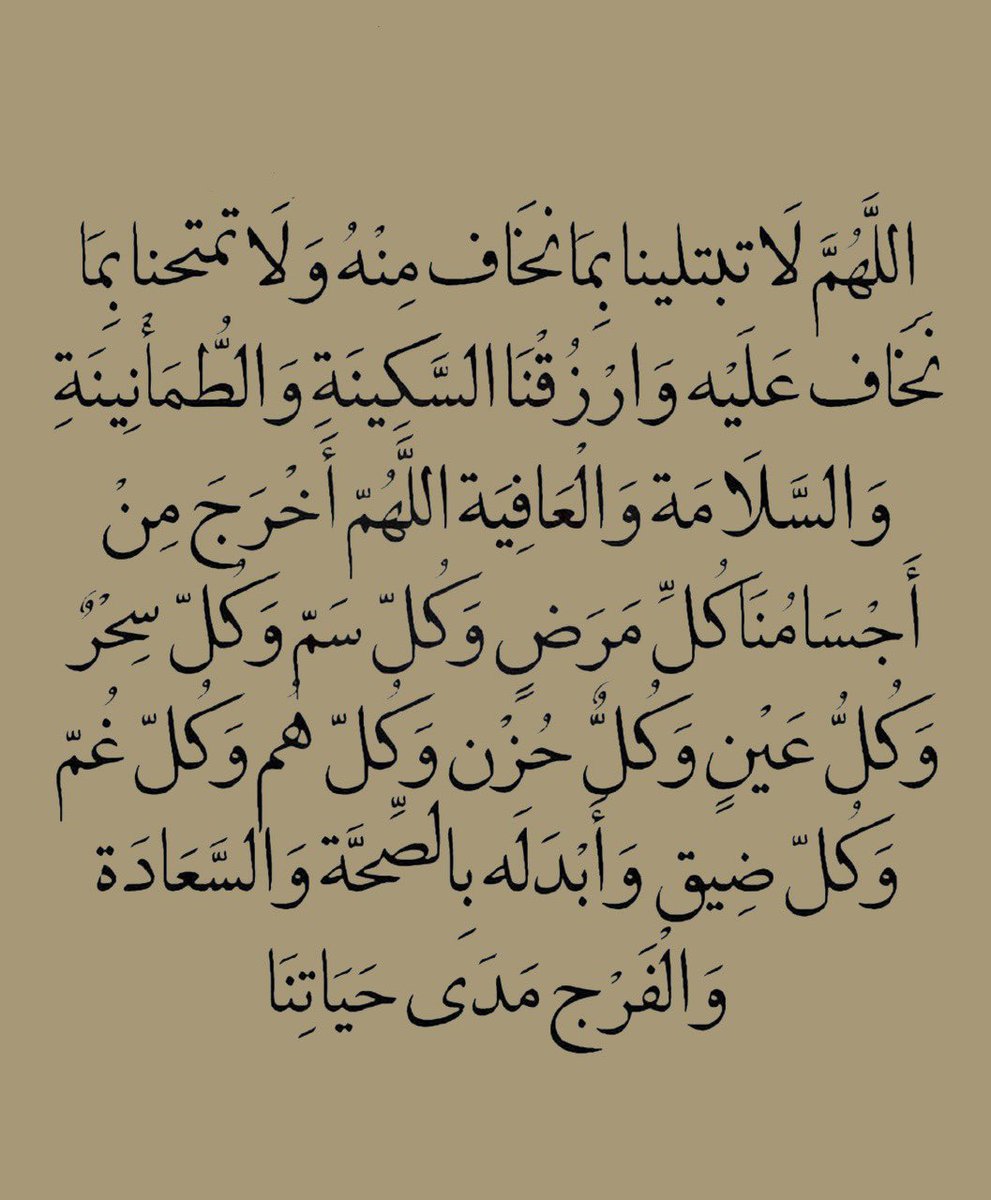 اللَّهُمَّ لَا تبتلينا بِمَا نخَاف مِنْهُ وَ لَا تمتحنا بِمَا
نَخَاف عَلَيْه وَ ارْزُقْنَا السَّكِينَةِ وَ الطُّمَأْنِينَةِ
وَ السَّلَامَة وَ الْعَافِيَة اللَّهُمّ أَخْرَجَ مِنْ
أَجْسَامُنَا كُلِّ مَرَضٍ وَكُلّ سَمّ وَكُلّ سِحْرٌ
وَكُلُّ عَيْنٍ وَكُلٌّ حُزْن وَكُلّ هُم وَكُلّ غُمّ
وَكُلّ ضِيق وَأَبْدَلَه بِالصِّحَّة وَ السَّعَادَة
وَ الْفَرْج مَدَى حَيَاتِنَا